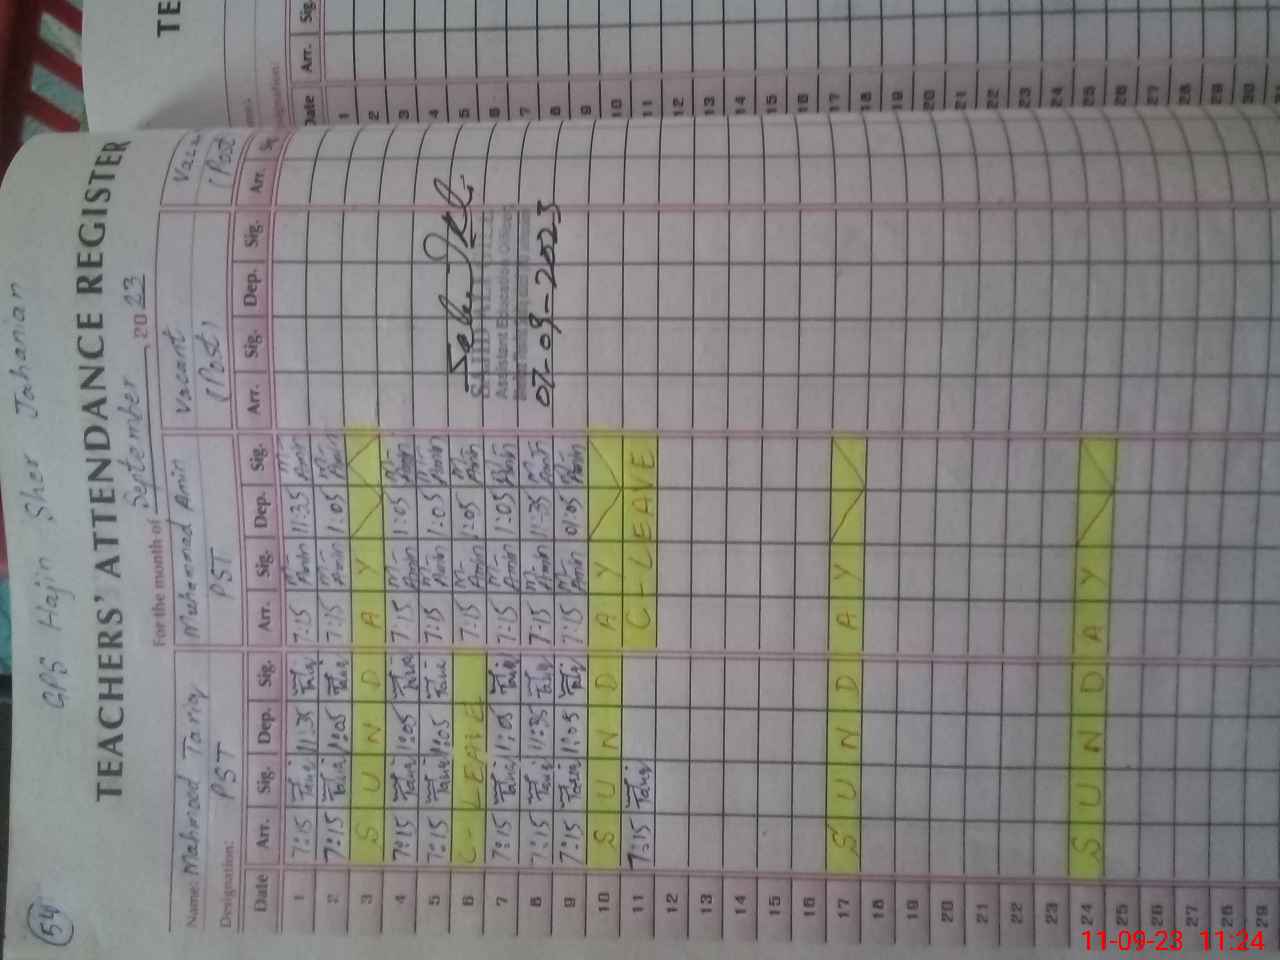 54
GPS Hajin Sher Jahanian
TEACHERS' ATTENDANCE REGISTER
For the month of September, 2023
Name: Mahmood Tariq Muhammad Amin Vacant
Designation: PST PST (Post) (Post
Date Arr. Sig. Dep. Sig. Arr. Sig. Dep. Sig. Arr. Sig. Dep. Sig. Arr.
1 7:15 Tariq 11:35 Tariq 7:15 M-Amin 11:35 M-Amin
2 7:15 Tariq 1:05 Tariq 7:15 M-Amin 1:05 M-Amin
3 SUNDAY
4 7:15 Tariq 1:05 Tariq 7:15 M-Amin 1:05 M-Amin
5 7:15 Tariq 1:05 Tariq 7:15 M-Amin 1:05 M-Amin
6 C-LEAVE 7:15 M-Amin 1:05 M-Amin
7 7:15 Tariq 1:05 Tariq 7:15 M-Amin 1:05 M-Amin
8 7:15 Tariq 11:35 Tariq 7:15 M-Amin 11:35 M-Amin
9 7:15 Tariq 1:05 Tariq 7:15 M-Amin 01:05 M-Amin
10 SUNDAY
11 7:15 Tariq C-LEAVE
12
13
14
15
16
17 SUNDAY
18
19
20
21
22
23
24 SUNDAY
25
26
27
28
29
Assistant Education Officer
07-09-2023
TE
Date Arr. Sig.
1
2
3
4
5
6
7
8
9
10
11
12
13
14
15
16
17
18
19
20
21
22
23
24
25
26
27
28
29
30
11-09-23 11:24